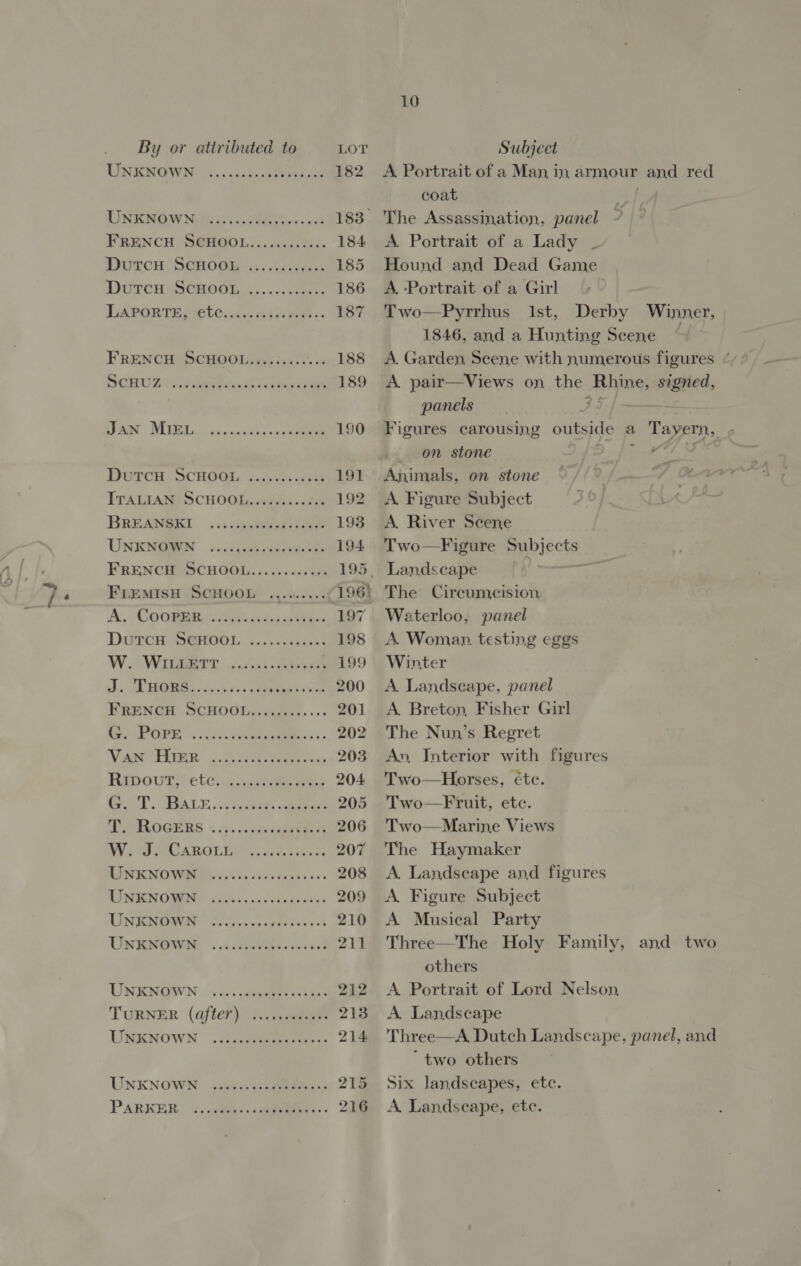 10
By or attributed to LOT Subject
UNKNOWN ..................... 182 A Portrait of a Man in armour and red
coat
UNKNOWN ..................... 183 The Assassination, panel
FRENCH SCHOOL............ 184 A Portrait of a Lady
DUTCH SCHOOL ............ 185 Hound and Dead Game
DUTCH SCHOOL ............ 186 A Portrait of a Girl
LAPORTE, etc.................. 187 Two—Pyrrhus 1st, Derby Winner,
1846, and a Hunting Scene
FRENCH SCHOOL............ 188 A Garden Scene with numerous figures
SCHUZ ........................ 189 A pair—Views on the Rhine, signed,
panels 35/
JAN MIEL ..................... 190 Figures carousing outside a Tavern,
on stone
DUTCH SCHOOL ............ 191 Animals, on stone
ITALIAN SCHOOL............ 192 A Figure Subject
BREANSKI ..................... 193 A River Scene
UNKNOWN ..................... 194 Two—Figure Subjects
FRENCH SCHOOL............ 195 Landscape
FLEMISH SCHOOL ......... 196 The Circumcision
A. COOPER ..................... 197 Waterloo, panel
DUTCH SCHOOL ............ 198 A Woman testing eggs
W. WILLETT .................. 199 Winter
J. THORS........................ 200 A Landscape, panel
FRENCH SCHOOL............ 201 A Breton Fisher Girl
G. POPE ........................ 202 The Nun's Regret
VAN HIER ..................... 203 An Interior with figures
RIDOUT, etc. .................. 204 Two—Horses, etc.
G. T. BALE..................... 205 Two—Fruit, etc.
T. ROGERS ..................... 206 Two—Marine Views
W. J. CAROLL ............... 207 The Haymaker
UNKNOWN ..................... 208 A Landscape and figures
UNKNOWN ..................... 209 A Figure Subject
UNKNOWN ..................... 210 A Musical Party
UNKNOWN ..................... 211 Three—The Holy Family, and two
others
UNKNOWN ..................... 212 A Portrait of Lord Nelson
TURNER (after) ............ 213 A Landscape
UNKNOWN ..................... 214 Three—A Dutch Landscape, panel, and
two others
UNKNOWN ..................... 215 Six landscapes, etc.
PARKER ........................ 216 A Landscape, etc.